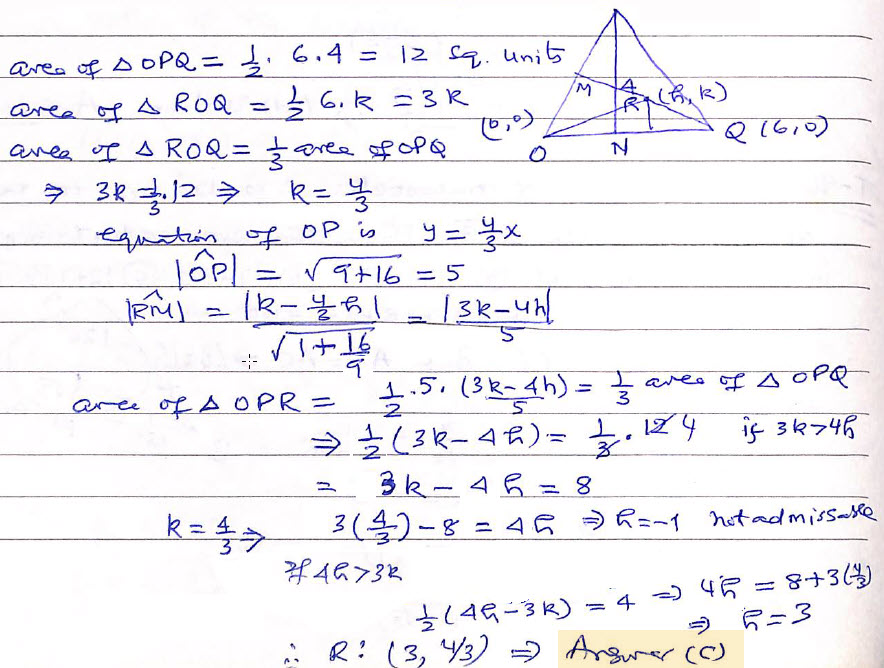 area of Δ OPQ = 1/2 . 6.4 = 12 sq. units
area of Δ ROQ = 1/2 6.k = 3k
area of Δ ROQ = 1/3 area of OPQ
⇒ 3k = 1/3 . 12 ⇒ k = 4/3
M A R (h, k)
(0,0) O N Q (6,0)
equation of OP is y = 4/3 x
|OP| = √9+16 = 5
|RM| = |k - 4/3 h| / √1 + 16/9 = |3k-4h| / 5
area of Δ OPR = 1/2 . 5 . (3k-4h)/5 = 1/3 area of Δ OPQ
⇒ 1/2 (3k - 4h) = 1/3 . 12 4 if 3k>4h
= 3k - 4h = 8
k = 4/3 ⇒ 3(4/3) - 8 = 4h ⇒ h = -1 not admissable
If 4h > 3k
1/2 (4h-3k) = 4 ⇒ 4h = 8+3(4/3)
⇒ h = 3
∴ R : (3, 4/3) ⇒ Answer (C)